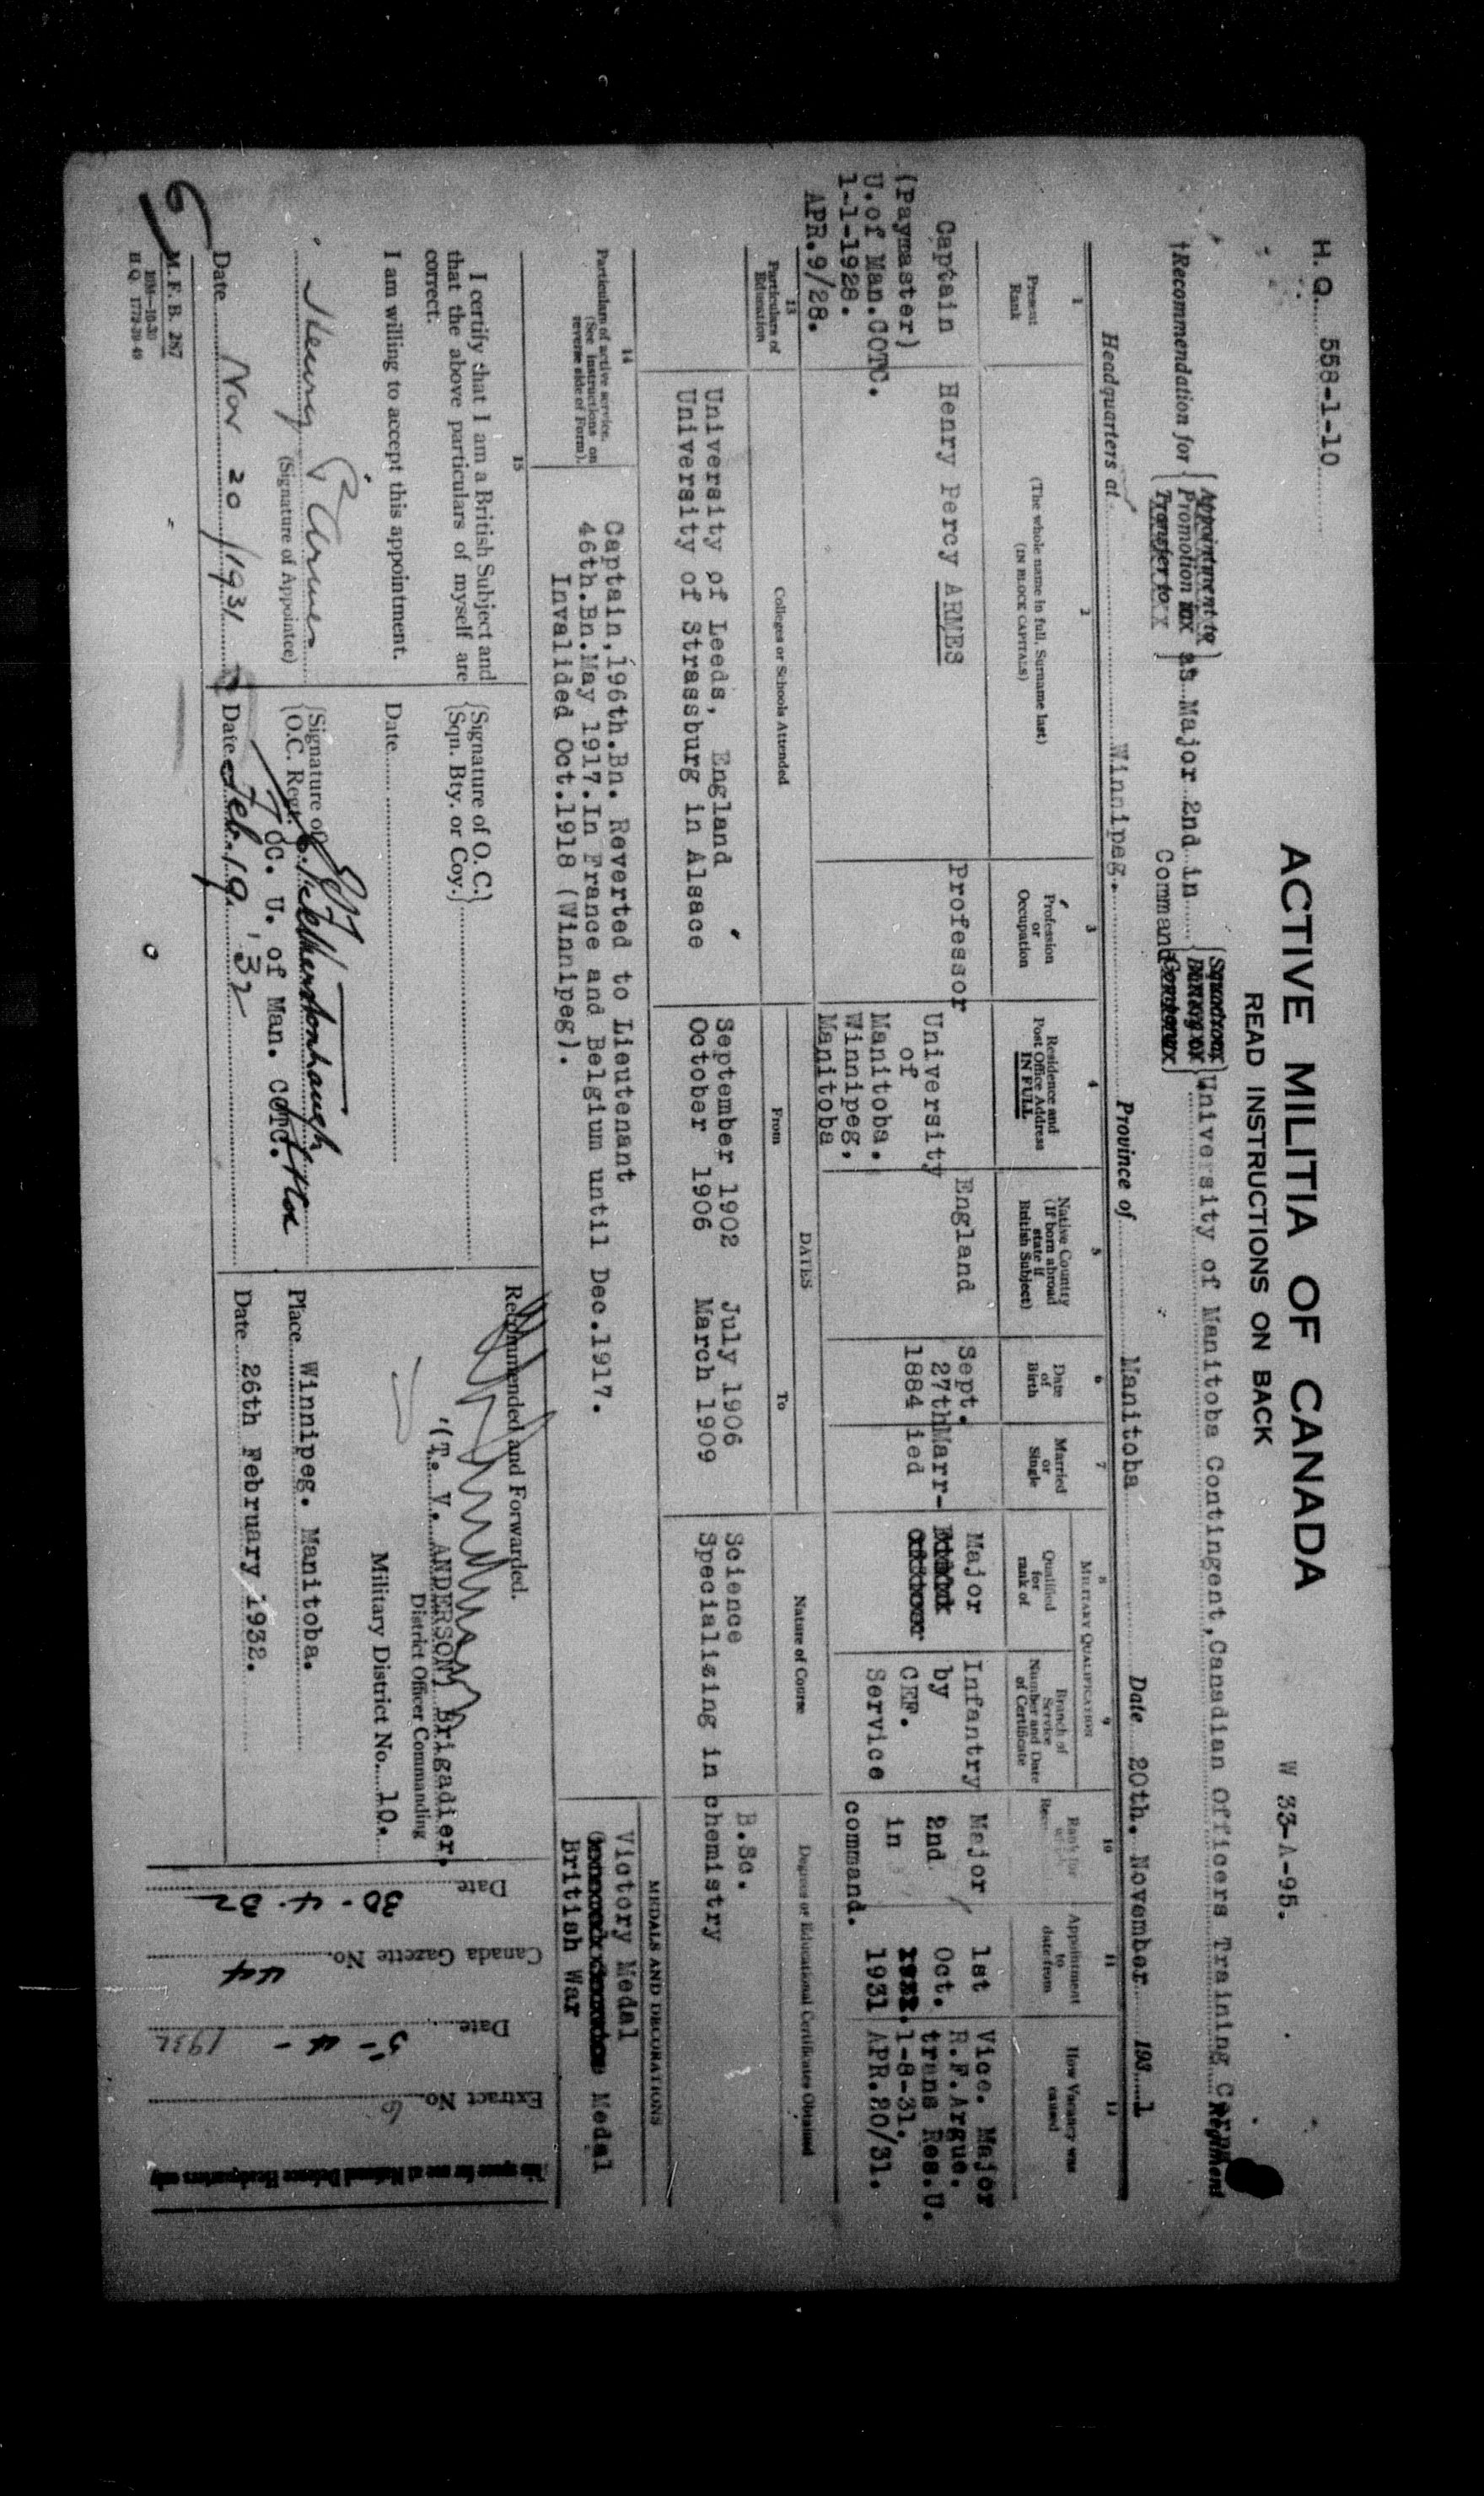 H. Q. 558-1-10
ACTIVE MILITIA OF CANADA
W 33-A-95.
READ INSTRUCTIONS ON BACK
†Recommendation for { Appointment to
Promotion
Transfer to } as Major 2nd in
Command { Squadron
Battery or
Company } University of Manitoba Contingent, Canadian Officers Training Corps Regiment
Headquarters at Winnipeg. Province of Manitoba Date 20th. November 193 1
1
Present
Rank
2
(The whole name in full, Surname last)
(IN BLOCK CAPITALS)
3
Profession
or
Occupation
4
Residence and
Post Office Address
IN FULL
5
Native Country
(If born abroad
state if
British Subject)
6
Date
of
Birth
7
Married
or
Single
MILITARY QUALIFICATION
8
Qualified
for
rank of
9
Branch of
Service
Number and Date
of Certificate
10
Rank for
which
11
Appointment
to
date from
12
How Vacancy was
caused
Captain
(Paymaster)
U.of Man.COTC.
1-1-1928.
APR.9/28.
Henry Percy ARMES
Professor
University
of
Manitoba.
Winnipeg.
Manitoba
England
Sept.
27th
1884
Marr-
ied
Major
Infantry
by
CEF.
Service
Major
2nd
in
command.
1st
Oct.
1931
Vice. Major
R.F.Argue.
trans Res.U.
1-8-31.
APR.80/31.
13
Particulars of
Education
Colleges or Schools Attended
DATES
From
To
Nature of Course
Degrees or Educational Certificates Obtained
University of Leeds, England
University of Strassburg in Alsace
September 1902
October 1906
July 1906
March 1909
Science
Specializing in chemistry
B.Sc.
14
Particulars of active service.
(See instructions on
reverse side of Form).
Captain,196th.Bn. Reverted to Lieutenant
46th.Bn.May 1917.In France and Belgium until Dec.1917.
Invalided Oct.1918 (Winnipeg).
MEDALS AND DECORATIONS
Victory Medal
Medal
British War
15
I certify that I am a British Subject and
that the above particulars of myself are
correct.
I am willing to accept this appointment.
Henry P Armes
(Signature of Appointee)
Date Nov 20/1931
{Signature of O.C.
{Sqn. Bty. or Coy.}
Date
{Signature of
{O.C. Regt.
OC. U. of Man. COTC.
Date Feb. 19, '32
Recommended and Forwarded.
(T. V. ANDERSON) Brigadier,
District Officer Commanding
Military District No. 10.
Place Winnipeg. Manitoba.
Date 26th February 1932.
Date 30-4-32
Canada Gazette No. 44
Date 5-4-1932
Extract No. 6
This space for use at National Defence Headquarters only
M. F. B. 287
H.Q. 1772-39-49